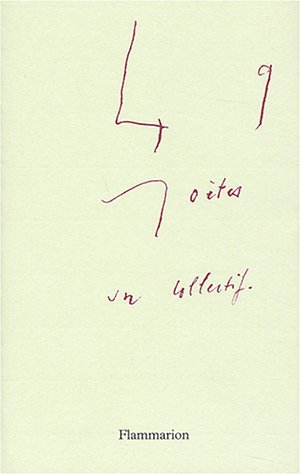 49
poètes
un collectif.
Flammarion